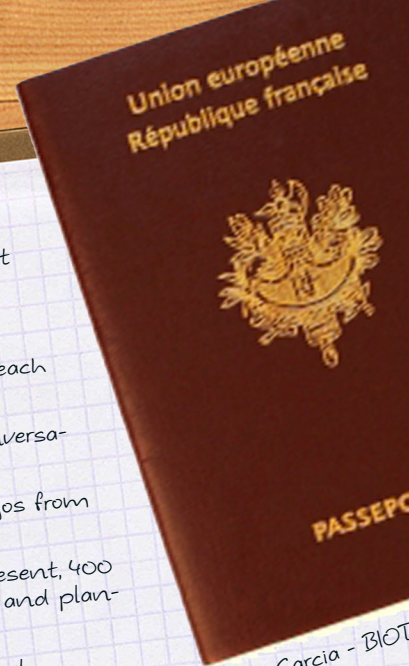 Union européenne
République française
PASSEPO
t
each
versa-
os from
esent, 400
and plan-
Garcia - BIOT